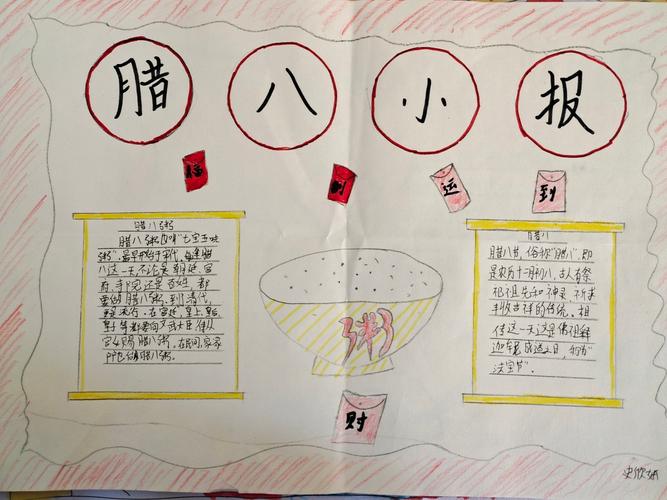 腊八小报
福 到 运 到
腊八粥
腊八粥也叫"七宝五味
粥",最早开始于宋代,每逢腊
八这一天不论是朝廷、官
府、寺院还是百姓,都
要做腊八粥,到清代,
在宫廷,皇上,皇后,
皇子等都要向文武大臣、侍从
宫女赐腊八粥。在民间,家家
户户也做腊八粥。
粥
财
腊八
腊八节,俗称"腊八",即
是农历十二月初八,古人有祭
祀祖先和神灵、祈求
丰收吉祥的传统,相
传这一天这是佛祖释
迦牟尼成道之日,称为"
法宝节"。